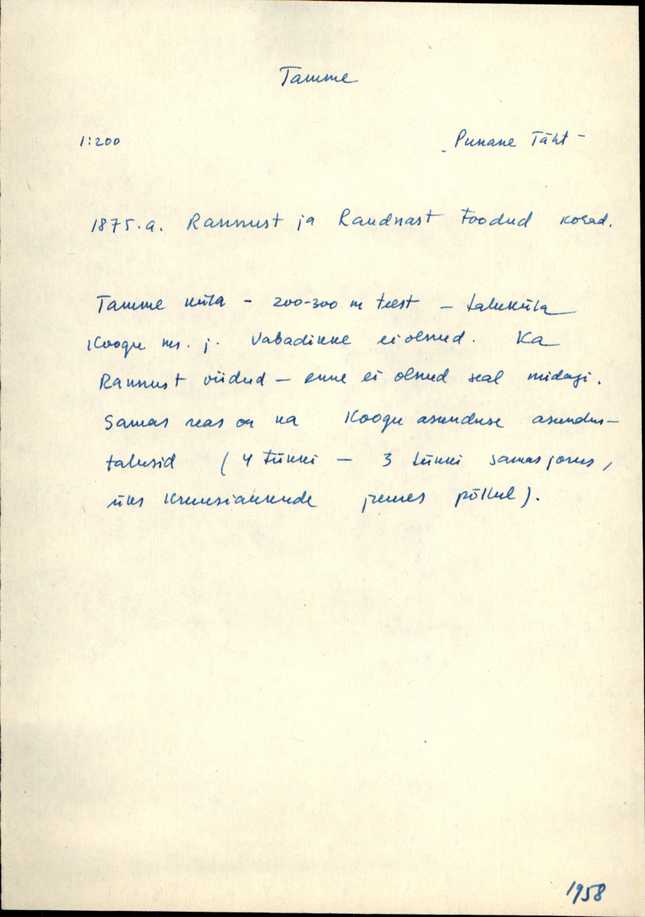 Tamme
1:200 „Punane Täht"
1875.a. Rannust ja Raudnast toodud kohad.
Tamme küla – 200-300 m teest – taluküla
Koogu ms. j. Vabadikke ei olnud. Ka
Rannust viidud – enne ei olnud seal midagi.
Samas reas on ka Koogu asunduse asundus-
talusid (4 tükki – 3 tükki samas jorus,
üks kruusiaukude juures põllul).
1958